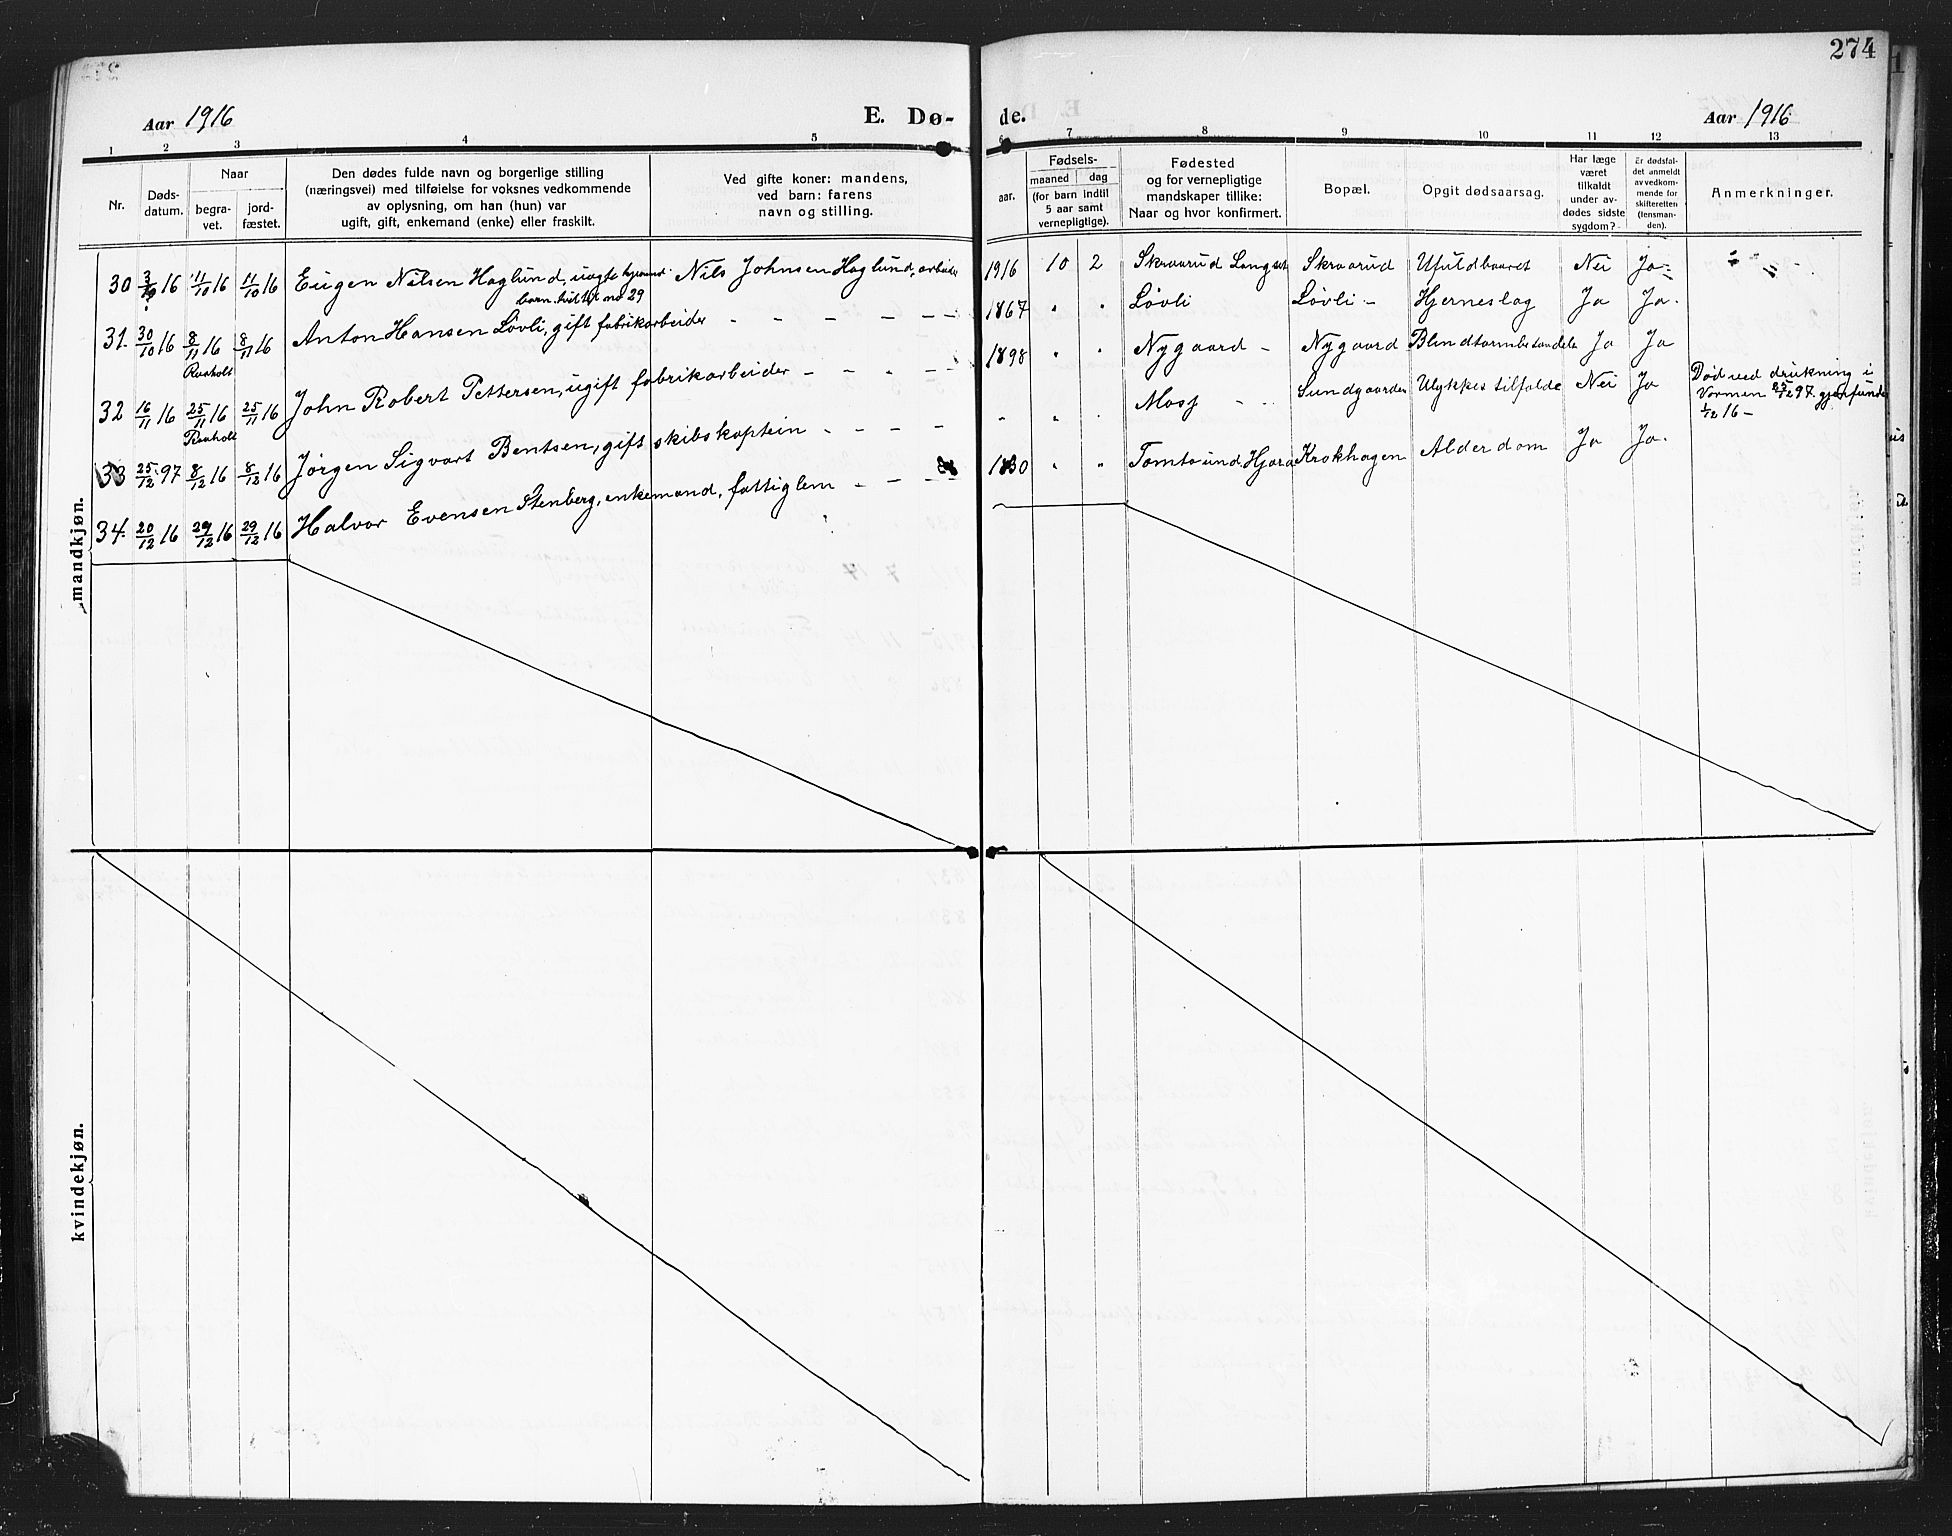 274
Aar 1916
E. Dø-
de.
Aar 1916
1 2 3 4 5 6 7 8 9 10 11 12 13
Nr.
Døds-
datum.
Naar
begra-
vet.
jord-
fæstet.
Den dødes fulde navn og borgerlige stilling
(næringsvei) med tilføielse for voksnes vedkommende
av oplysning, om han (hun) var
ugift, gift, enkemand (enke) eller fraskilt.
Ved gifte koner: mandens,
ved barn: farens
navn og stilling.
aar.
Fødsels-
maaned dag
(for barn indtil
5 aar samt
vernepligtige).
Fødested
og for vernepligtige
mandskaper tillike:
Naar og hvor konfirmert.
Bopæl.
Opgit dødsaarsag.
Har læge
været
tilkaldt
under av-
dødes sidste
sygdom?
Er dødsfal-
det anmeldt
av vedkom-
mende for
skifteretten
(lensman-
den).
Anmerkninger.
mandkjøn.
30 3/10 16 11/10 16 11/10 16 Eugen Nilsen Haglund, uegte Nils Johnsen Haglund, arbeider 1916 10 2 Skraarud Langset Skraarud Ufuldbaaret Nei Ja
barn tvilling no 29
31. 30/10 16 8/11 16 8/11 16 Anton Hansen Løvli, gift fabrikarbeider - - - - - - 1867 " " Løvli Løvli - Hjerneslag Ja Ja.
Raaholt
32 16/11 16 25/11 16 25/11 16 John Robert Pettersen, ugift fabrikarbeider - - - - - 1898 " " Nygaard - Nygaard Blindtarmbetændelse Ja Ja
Raaholt
33 25/12 97 8/12 16 8/12 16 Jørgen Sigvart Bentsen, gift skibskaptein - - - - - " " " Moss - - Sundgaarden Ulykkestilfælde Nei Ja Død ved drukning i
Vormen 25/12 97. gjenfunden
1/12 16 -
34. 20/12 16 29/12 16 29/12 16 Halvor Evensen Stenberg, enkemand, fattiglem - - - - 1830 " " Tomte und. Hjera Krokhagen Alderdom Ja Ja.
kvindekjøn.